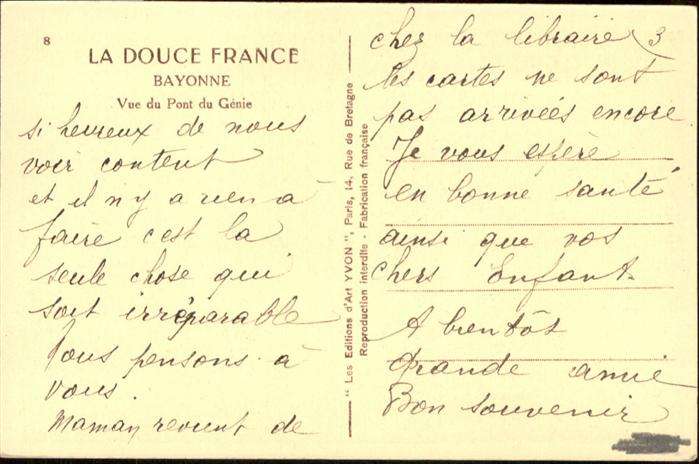 8
LA DOUCE FRANCE
BAYONNE
Vue du Pont du Génie
si heureux de nous
voir content
et il n y a rien à
faire c est la
seule chose qui
soit irréparable
Nous pensons à
vous.
Maman revient de
"Les Editions d'Art YVON", Paris, 14, Rue de Bretagne
Reproduction interdite - Fabrication française
chez la libraire 3
les cartes ne sont
pas arrivées encore
Je vous espère
en bonne santé
ainsi que vos
chers enfant.
A bientôt
grande amie
Bon souvenir